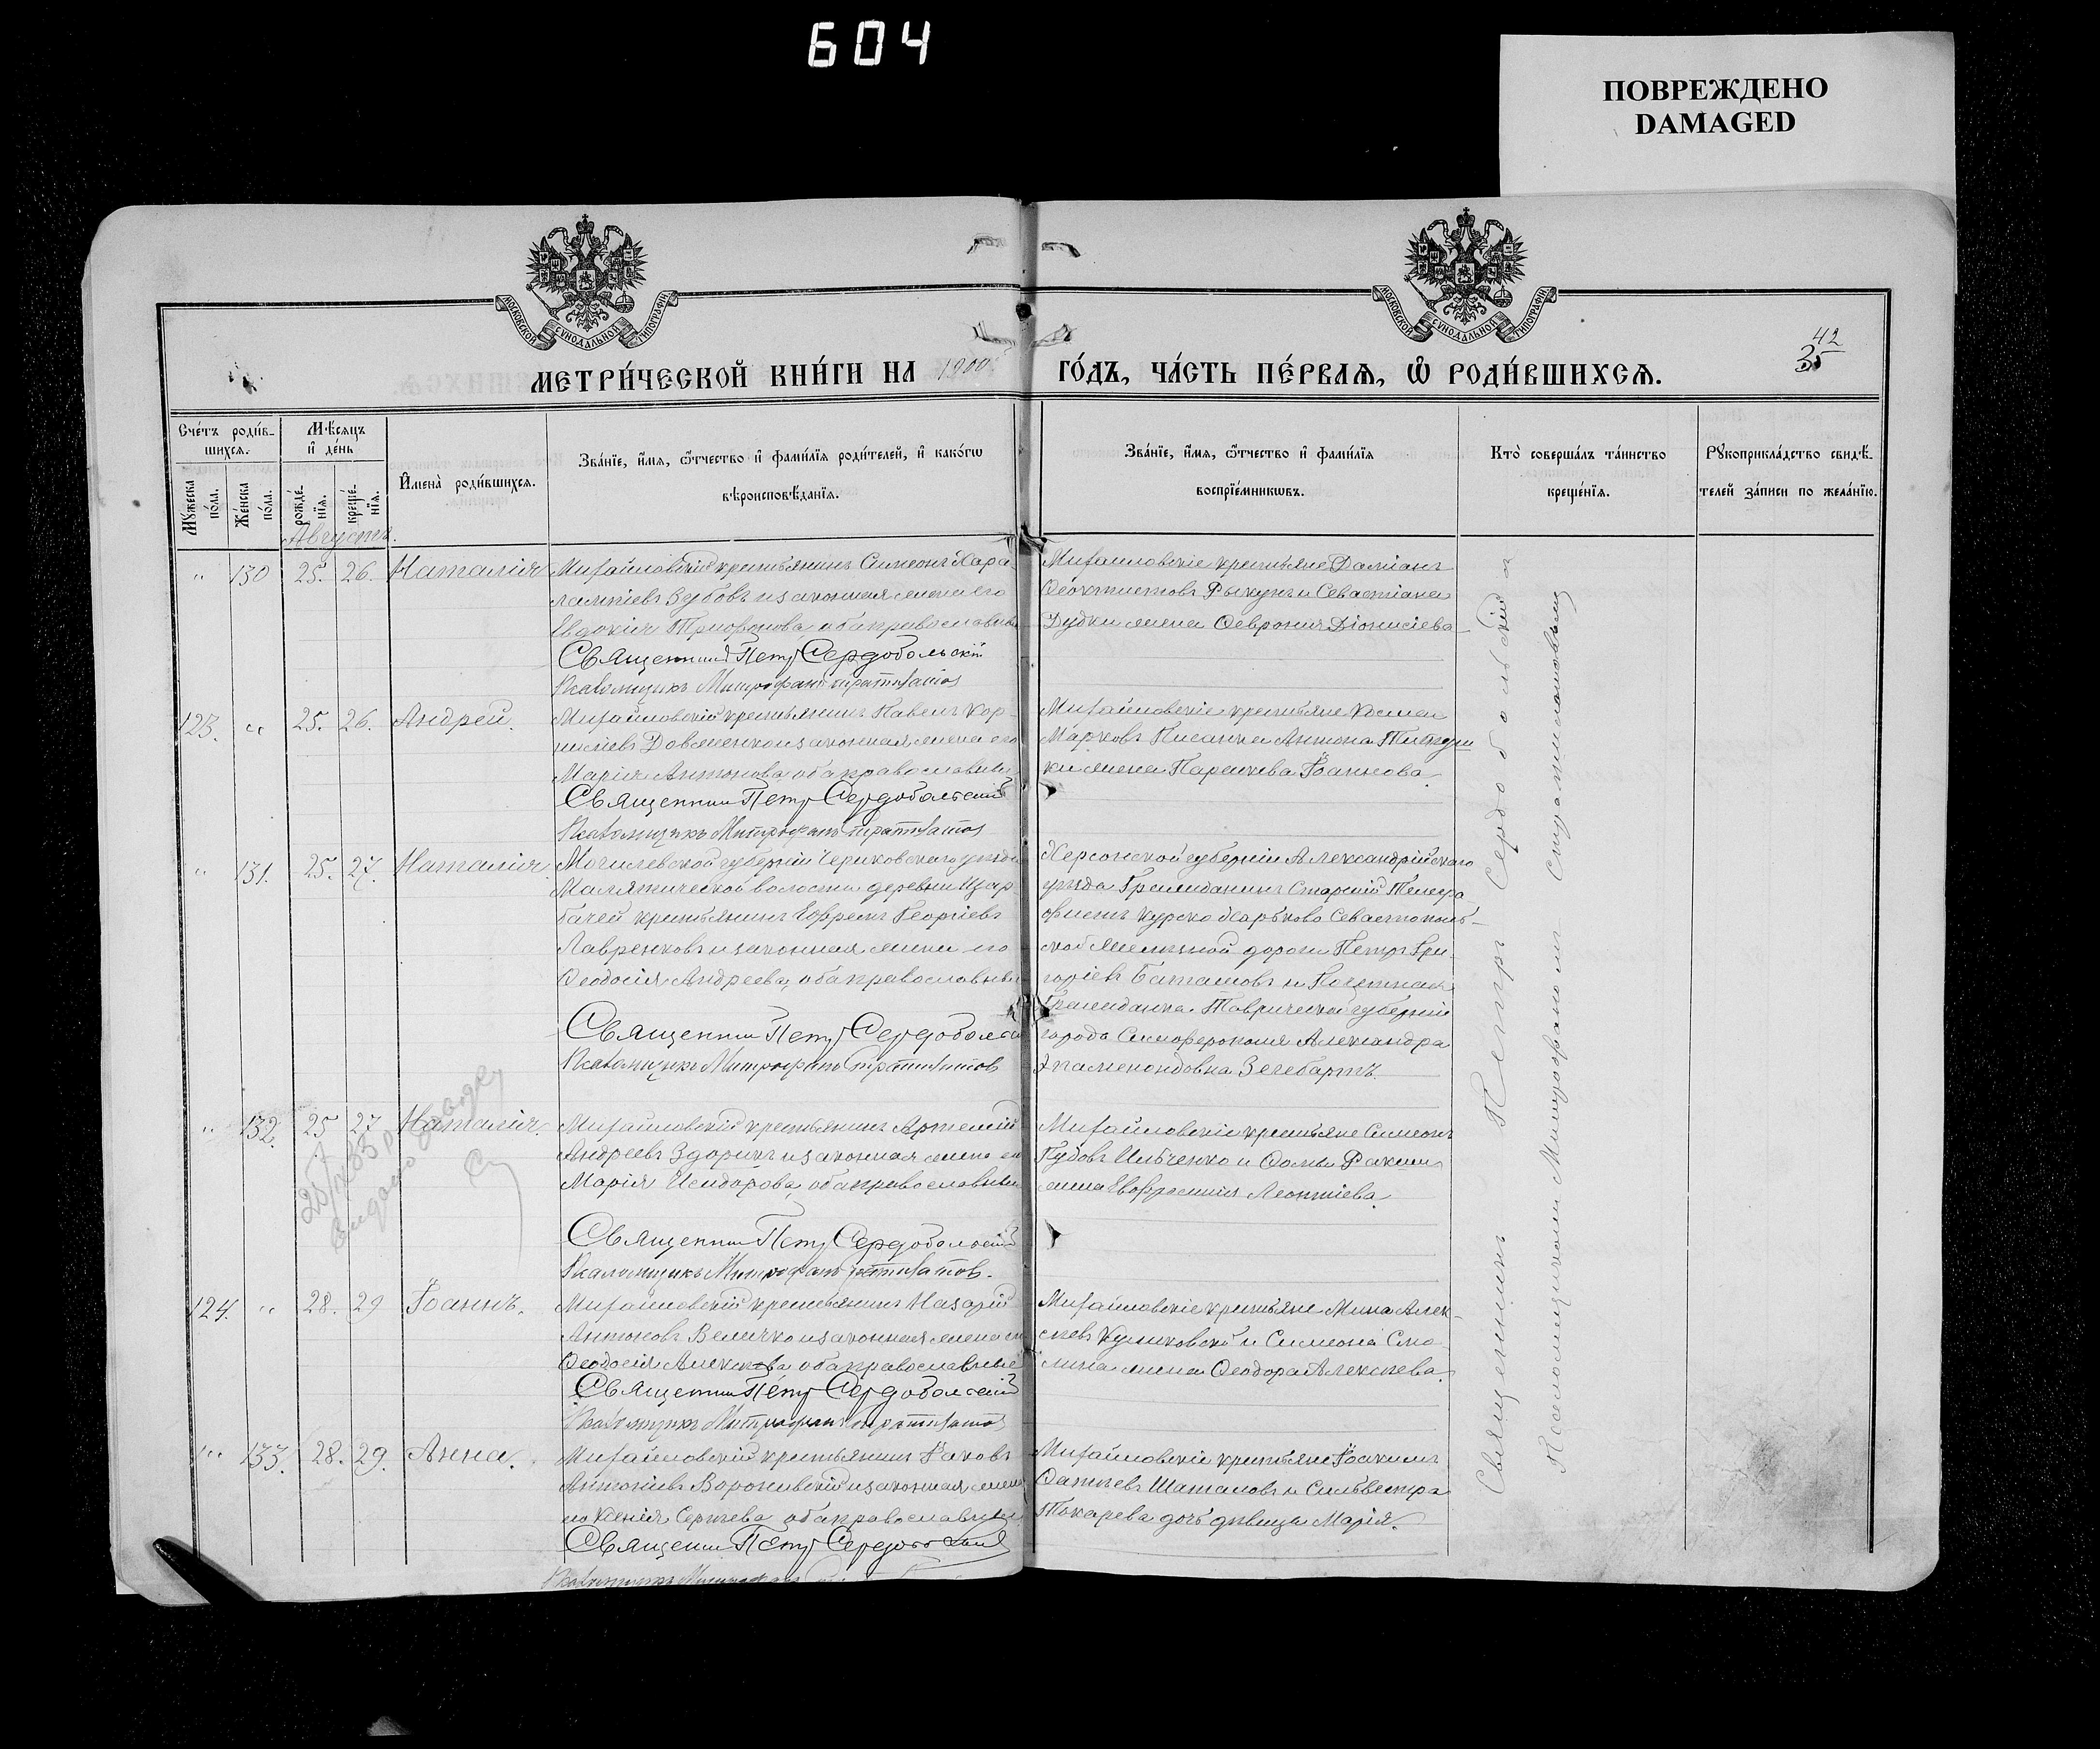 604
ПОВРЕЖДЕНО
DAMAGED
МОСКОВСКОЙ СѴНОДАЛЬНОЙ ТИПОГРАФІИ
МОСКОВСКОЙ СѴНОДАЛЬНОЙ ТИПОГРАФІИ
42
35
МЕТРИ́ЧЕСКОЙ КНИ́ГИ НА 1900 ГО́ДЪ, ЧА́СТЬ ПЕ́РВАѦ, Ѡ РОДИ́ВШИХСѦ.
Сче́тъ роди́в-
шихсѧ.
Мꙋ́жеска по́ла.
Же́нска по́ла.
Мѣ́сѧцъ
и҆ де́нь
рожде́-
нїѧ.
креще́-
нїѧ.
И҆мена̀ роди́вшихсѧ.
Зва́нїе, и҆́мѧ, ѻ҆́тчество и҆ фами́лїѧ роди́телей, и҆ како́гѡ
вѣроисповѣ́данїѧ.
Зва́нїе, и҆́мѧ, ѻ҆́тчество и҆ фами́лїѧ
воспрїе́мникѡвъ.
Кто̀ соверша́лъ та́инство
креще́нїѧ.
Рꙋкоприкла́дство свидѣ́-
телей за́писи по жела́нїю.
Августъ.
" 130 25. 26. Наталія
Михайловскій крестьянинъ Симеонъ Хара
лампіевъ Зубовъ и законная жена его
Евдокія Трифонова, оба православные
Священник Петр Сердобольскій
Псаломщикъ Митрофанъ
Михайловскіе крестьяне Даміанъ
Ѳеоктистовъ Рыкунъ и Севастіана
Дудки жена Ѳевронія Діонисіева
123. " 25. 26. Андрей.
Михайловскій крестьянинъ Павелъ Кор-
ниліевъ Довженко и законная жена его
Марія Антонова оба православные
Священник Петр Сердобольскій
Псаломщикъ Митрофанъ
Михайловскіе крестьяне Косма
Марковъ Писанка и Антона
жена Параскева Іоаннова
" 131. 25. 27. Наталія
Могилевской губерніи Чериковскаго уѣзда
Малятической волости деревни
крестьянинъ Ефремъ Георгіевъ
Лавренковъ и законная жена его
Ѳеодосія Андреева, оба православные
Священник Петр Сердобольск
Псаломщикъ Митрофанъ
Херсонской губерніи Александрійскаго
уѣзда Гражданинъ Старшій Телегра
фистъ Курско Харьково Севастополь-
ской желѣзной дороги Петръ Гри
горіевъ Баташовъ и Почетная
Гражданка Таврической губерніи
города Симферополя Александра
Эпаменондовна Зегебартъ.
" 132. 25 27 Наталія.
Михайловскій крестьянинъ Артемій
Андреевъ Здорикъ и законная жена его
Марія Исидорова, оба православные
Священник Петр Сердобольскій
Псаломщикъ Митрофанъ
Михайловскіе крестьяне Симеонъ
Ильченко и Ѳомы
жена Евфросинія Леонтіева.
124. " 28. 29 Іоаннъ.
Михайловскій крестьянинъ Назарій
Антоновъ Величко и законная жена его
Ѳеодосія Алексѣева, оба православные
Священник Петр Сердобольскій
Псаломщикъ Митрофанъ
Михайловскіе крестьяне Мина Алек-
сѣевъ Куликовскій и Симеона Смо
лина жена Ѳеодора Алексѣева.
" 133. 28. 29. Анна.
Михайловскій крестьянинъ Іаковъ
Антоніевъ Воронивскій и законная жена
его Ксенія Сергіева оба православные
Священик Петр Сердобольскій
Псаломщикъ Митрофанъ
Михайловскіе крестьяне Іоакимъ
Шаталовъ и Сильвестра
Токарева дочь дѣвица Марія.
Священникъ Петръ Сердобольскій съ
Псаломщикомъ Митрофаномъ